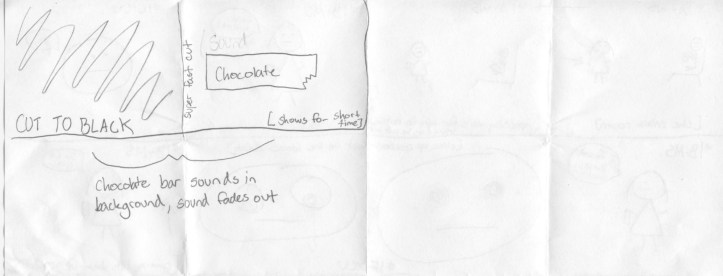 CUT TO BLACK
super fast cut
Sound
Chocolate
[shows for short time]
Chocolate bar sounds in
background, sound fades out